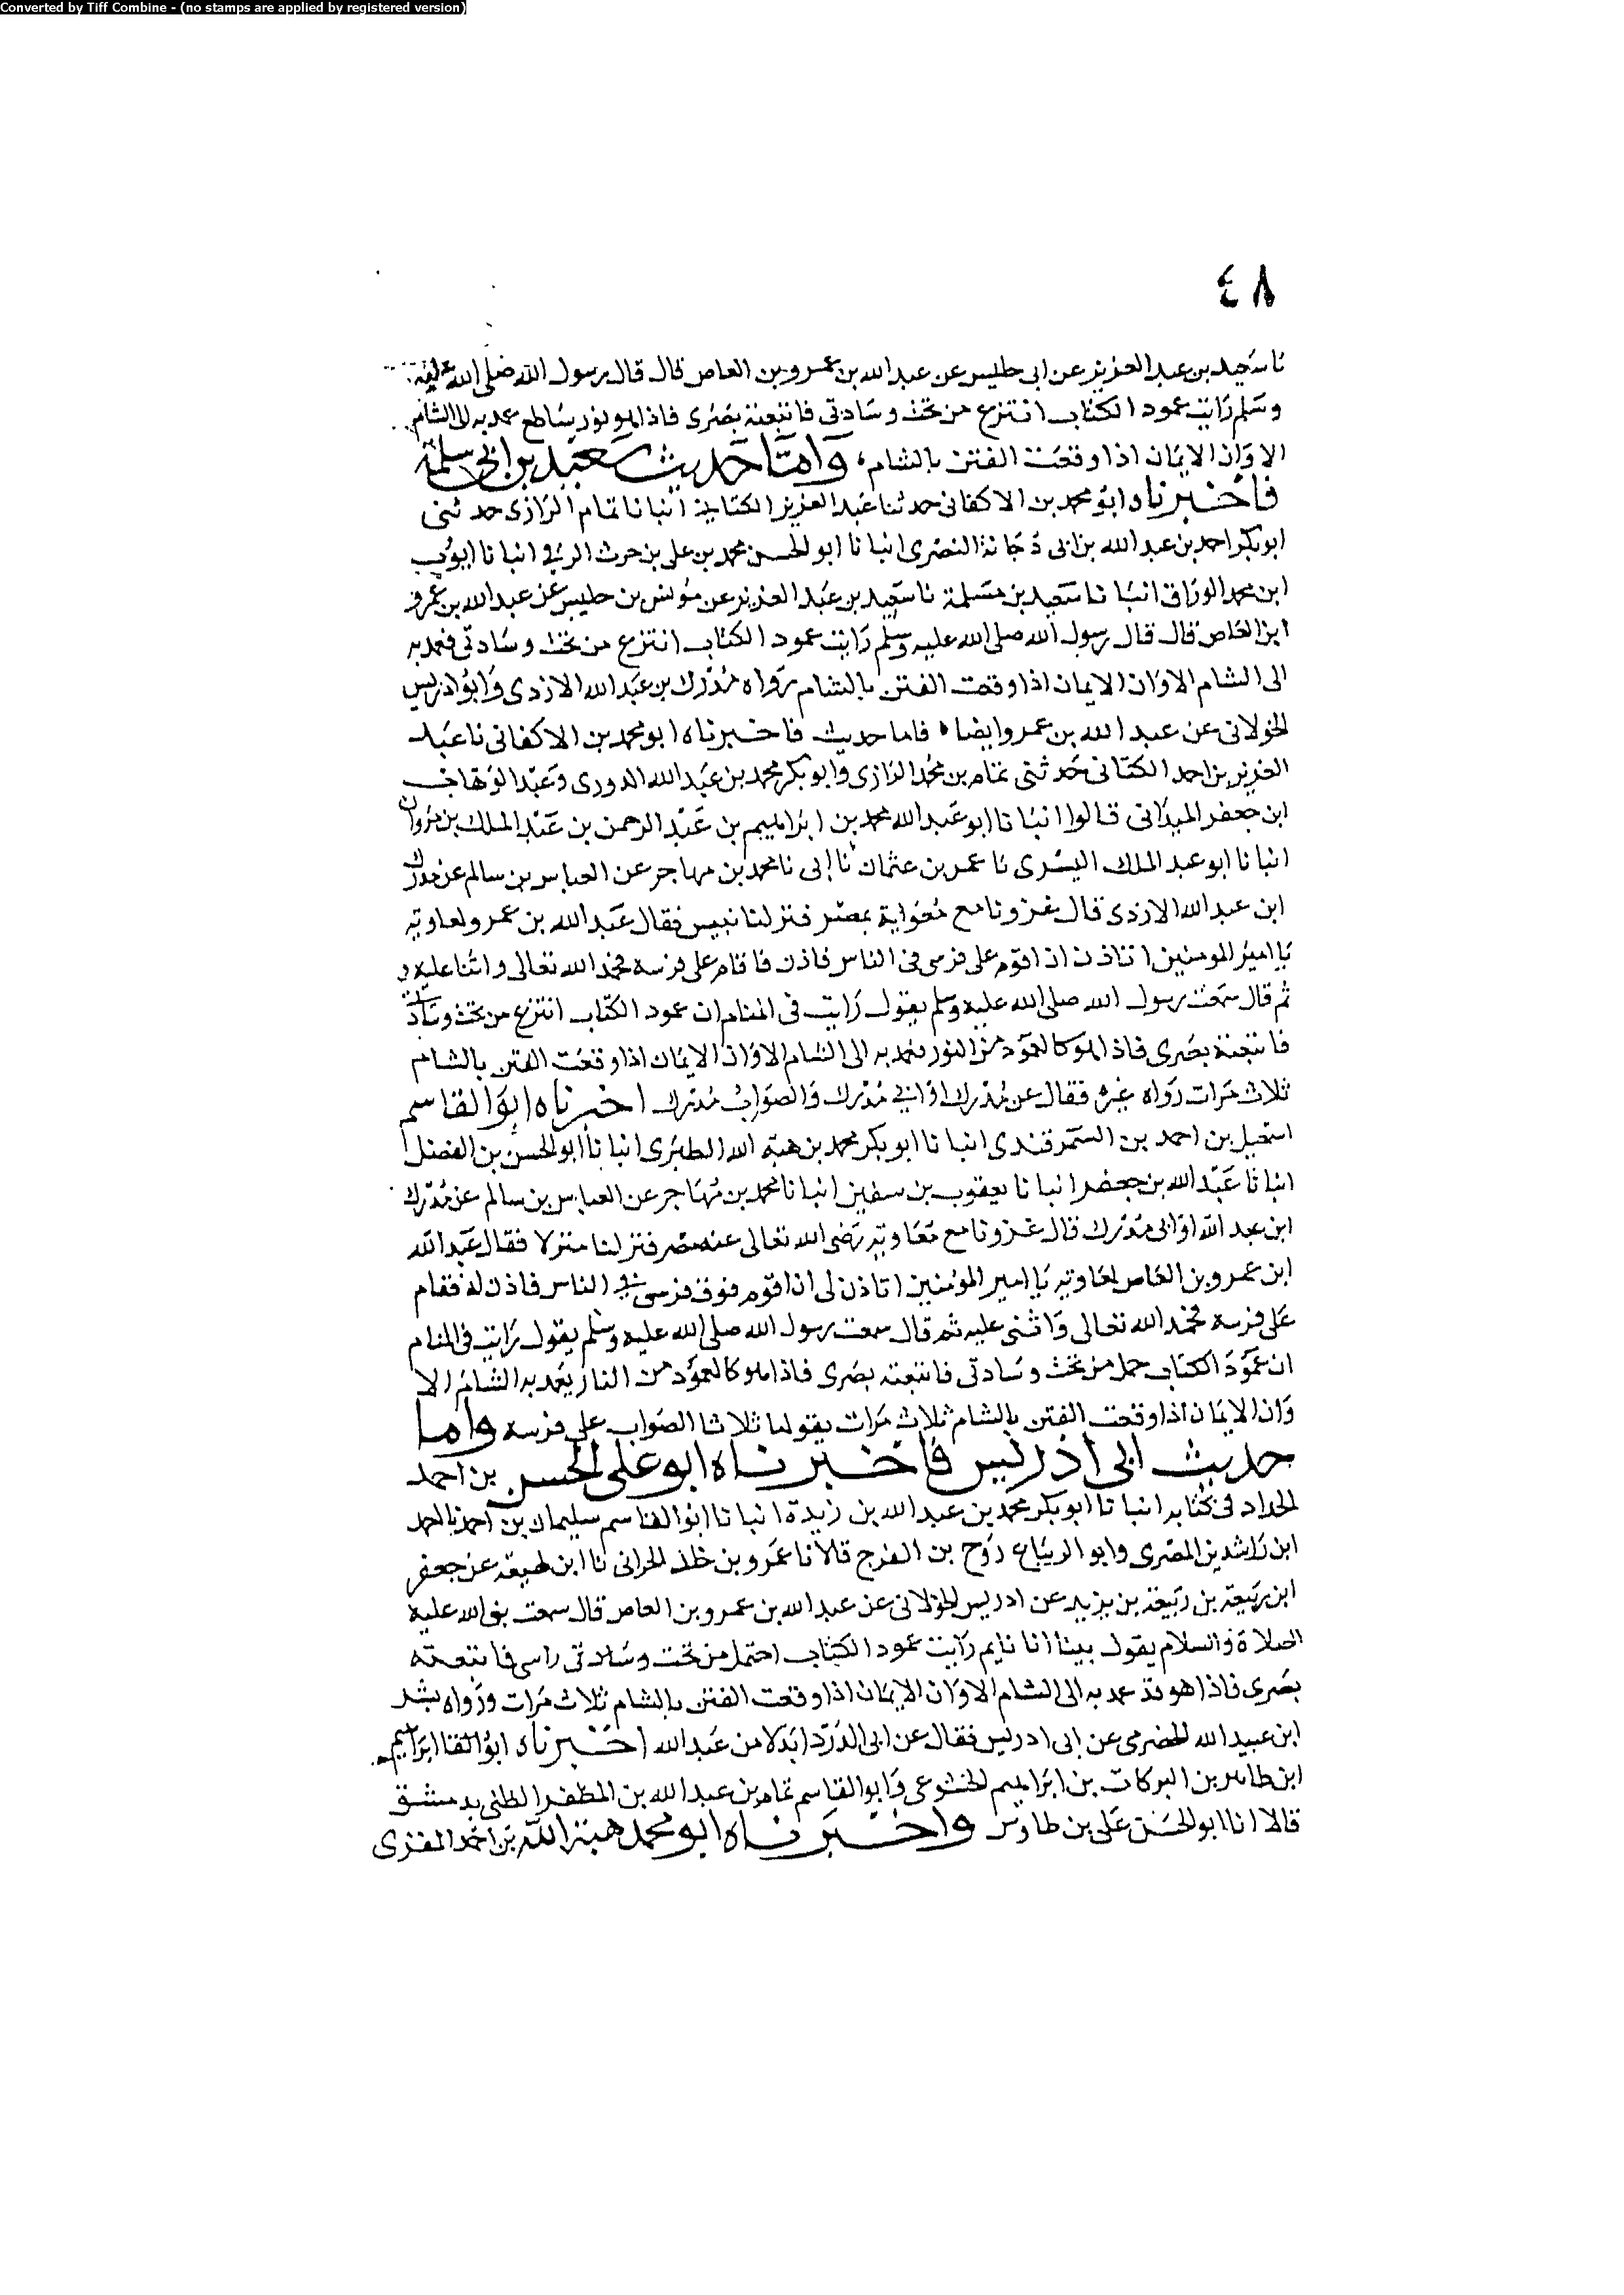 Converted by Tiff Combine - (no stamps are applied by registered version)
٤٨
نا سعيد بن عبد العزيز عن ابى حليس عن عبد الله بن عمرو بن العاص قال قال رسول الله صلى الله عليه
وسلم رايت عمود الكتاب انتزع من تحت وسادتى فاتبعته بصرى فاذا هو نور ساطع عمد به الى الشام
الا وان الايمان اذا وقعت الفتن بالشام، واما حديث سعيد بن ابى سلمة
فاخبرناه ابو محمد بن الاكفانى حدثنا عبد العزيز الكتانى انبانا تمام الرازى حدثنى
ابو بكر احمد بن عبد الله بن ابى دجانة النصرى انبانا ابو الحسن محمد بن على بن حرث الربى انبانا ايوب
ابن محمد الوزاق انبانا سعيد بن مسلمة نا سعيد بن عبد العزيز عن مونس بن حليس عن عبد الله بن عمرو
ابن العاص قال قال رسول الله صلى الله عليه وسلم رايت عمود الكتاب انتزع من تحت وسادتى فعمد به
الى الشام الا وان الايمان اذا وقعت الفتن بالشام رواه مدرك بن عبد الله الازدى وابو ادريس
الخولانى عن عبد الله بن عمرو ايضا ، فاما حديث فاخبرناه ابو محمد بن الاكفانى نا عبد
العزيز بن احمد الكتانى حدثنى تمام بن محمد الرازى وابو بكر محمد بن عبد الله الدورى وعبد الوهاب
ابن جعفر الميدانى قالوا انبانا ابو عبد الله محمد بن ابراهيم بن عبد الرحمن بن عبد الملك بن مروان
انبانا ابو عبد الملك اليسرى نا عمر بن عثمان نا ابى نا محمد بن مهاجر عن العباس بن سالم عن مدرك
ابن عبد الله الازدى قال غزونا مع معواية بمصر فنزلنا نبيس فقال عبد الله بن عمرو لمعاوية
يا امير المومنين اتاذن ان اقوم على فرسى فى الناس فاذن فاقام على فرسه فحمد الله تعالى واثنا عليه و
ثم قال سمعت رسول الله صلى الله عليه وسلم يقول رايت فى المنام ان عمود الكتاب انتزع من تحت وسادتى
فاتبعته بصرى فاذا هو كالعمود من النور فعمد به الى الشام الا وان الايمان اذا وقعت الفتن بالشام
ثلاث مرات رواه غيره فقال عن مدرك او ابى مدرك والصواب مدرك اخبرناه ابو القاسم
اسمعيل بن احمد بن السمرقندى انبانا ابو بكر محمد بن هبة الله الطبرى انبانا ابو الحسن بن الفضل
انبانا عبد الله بن جعفر انبانا يعقوب بن سفين انبانا محمد بن مهاجر عن العباس بن سالم عن مدرك
ابن عبد الله او ابى مدرك قال غزونا مع معاوية رضى الله تعالى عنه مصر فنزلنا منزلا فقال عبد الله
ابن عمرو بن العاص لمعاوية يا امير المؤمنين اتاذن لى ان اقوم فوق فرسى فى الناس فاذن له فقام
على فرسه فحمد الله تعالى واثنى عليه ثم قال سمعت رسول الله صلى الله عليه وسلم يقول رايت فى المنام
ان عمود الكتاب حمل من تحت وسادتى فاتبعته بصرى فاذا هو كالعمود من النار يعمد به الشام الا
وان الايمان اذا وقعت الفتن بالشام ثلاث مرات يقولها ثلاثا الصواب على فرسه واما
حديث ابى ادريس فاخبرناه ابو على الحسن بن احمد
الحداد فى كتابه انبانا ابو بكر محمد بن عبد الله بن زيدة انبانا ابو القاسم سليمان بن احمد نا احمد
ابن راشدين المصرى وابو الرنباع روح بن الفرج قالا نا عمرو بن خلد الحرانى نا ابن لهيعة عن جعفر
ابن ربيعة بن ربيعة بن يزيد عن ادريس الخولانى عن عبد الله بن عمرو بن العاص قال سمعت بنى الله عليه
الصلاة والسلام يقول بينا انا نايم رايت عمود الكتاب احتمل من تحت وسادتى راسى فاتبعته
بصرى فاذا هو قد عمد به الى الشام الا وان الايمان اذا وقعت الفتن بالشام ثلاث مرات ورواه بشر
ابن عبيد الله الحضرمى عن ابى ادريس فقال عن ابى الدردا بدلا من عبد الله اخبرناه ابو القا ابراهيم
ابن طاهر بن البركات بن ابراهيم الخشوعى وابو القاسم تمام بن عبد الله بن المظفر الظنى بدمشق
قالا انا ابو الحسن على بن طاوس واخبرناه ابو محمد هبة الله بن احمد المقرى